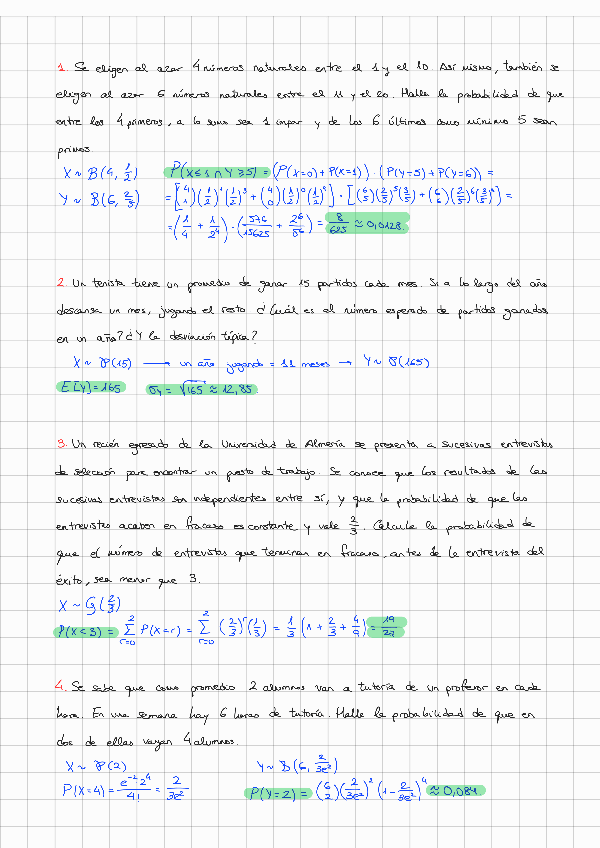 1. Se eligen al azar 4 números naturales entre el 1 y el 10. Así mismo, también se
eligen al azar 6 números naturales entre el 11 y el 20. Halle la probabilidad de que
entre los 4 primeros, a lo sumo sea 1 impar y de los 6 últimos como mínimo 5 sean
primos.
X ~ B(4, 1/2) P(X ≤ 1 ∩ Y ≥ 5) = (P(X=0) + P(X=1)) · (P(Y=5) + P(Y=6)) =
Y ~ B(6, 2/5) = [(4 1)(1/2)^1(1/2)^3 + (4 0)(1/2)^0(1/2)^4] · [(6 5)(2/5)^5(3/5) + (6 6)(2/5)^6(3/5)^0] =
= (1/4 + 1/2^4) · (576/15625 + 2^6/5^6) = 8/625 ≈ 0,0128.
2. Un tenista tiene un promedio de ganar 15 partidos cada mes. Si a lo largo del año
descansa un mes, jugando el resto ¿Cuál es el número esperado de partidos ganados
en un año? ¿Y la desviación típica?
X ~ P(15) → un año jugando = 11 meses → Y ~ P(165)
E[Y] = 165 σY = √165 ≈ 12,85.
3. Un recién egresado de la Universidad de Almería se presenta a sucesivas entrevistas
de selección para encontrar un puesto de trabajo. Se conoce que los resultados de las
sucesivas entrevistas son independientes entre sí, y que la probabilidad de que las
entrevistas acaben en fracaso es constante y vale 2/3. Calcule la probabilidad de
que el número de entrevistas que terminan en fracaso, antes de la entrevista del
éxito, sea menor que 3.
X ~ G(2/3)
P(X < 3) = ∑_{r=0}^{2} P(X=r) = ∑_{r=0}^{2} (2/3)^r (1/3) = 1/3 (1 + 2/3 + 4/9) = 19/27
4. Se sabe que como promedio 2 alumnos van a tutoría de un profesor en cada
hora. En una semana hay 6 horas de tutoría. Halle la probabilidad de que en
dos de ellas vayan 4 alumnos.
X ~ P(2) Y ~ B(6, 2/3e²)
P(X=4) = e^-2 · 2^4 / 4! = 2/3e² P(Y=2) = (6 2)(2/3e²)^2 (1 - 2/3e²)^4 ≈ 0,084